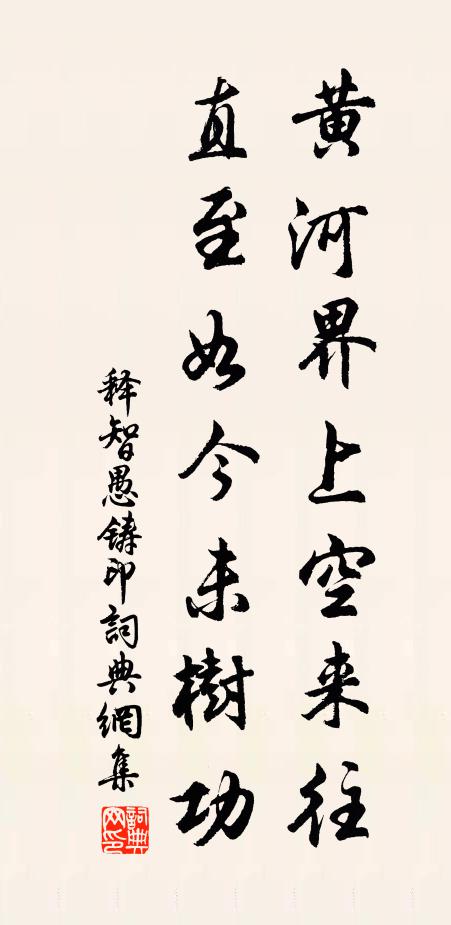 黄河界上空来往
直至如今未樹功
释智愚鑄印詞典網集
詞典網印